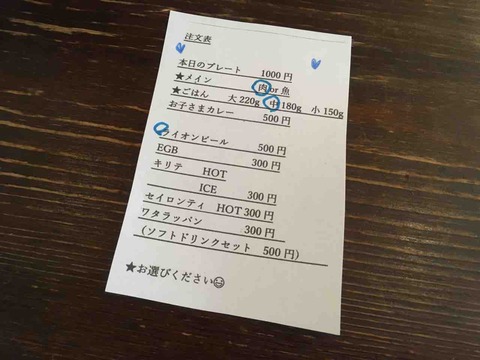 注文表
本日のプレート 1000円
★メイン 肉or魚
★ごはん 大220g 中180g 小150g
お子さまカレー 500円
ライオンビール 500円
EGB 300円
キリテ HOT
ICE 300円
セイロンティ HOT 300円
ワタラッパン 300円
(ソフトドリンクセット 500円)
★お選びください😃